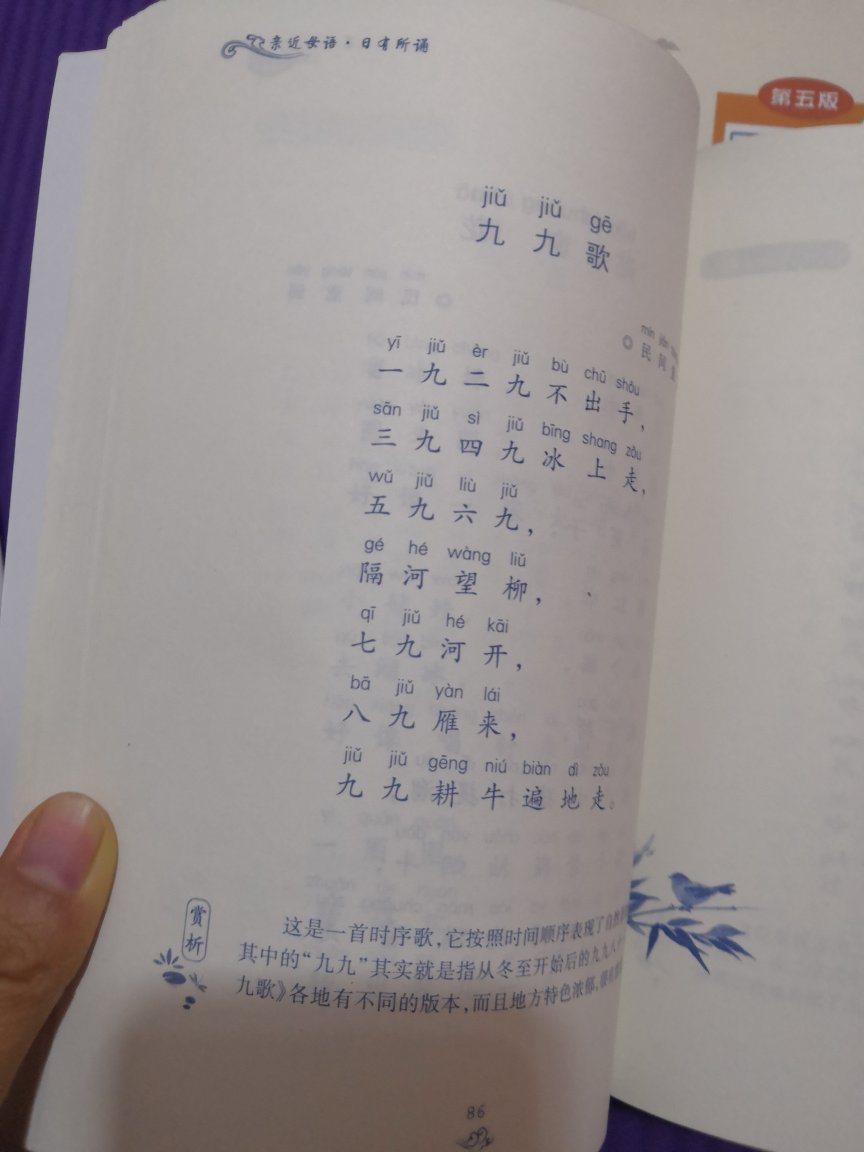 亲近母语·日有所诵
第五版
jiǔ jiǔ gē
九九歌
mín jiān
◎民间
yī jiǔ èr jiǔ bù chū shǒu
一九二九不出手，
sān jiǔ sì jiǔ bīng shang zǒu
三九四九冰上走，
wǔ jiǔ liù jiǔ
五九六九，
gé hé wàng liǔ
隔河望柳，
qī jiǔ hé kāi
七九河开，
bā jiǔ yàn lái
八九雁来，
jiǔ jiǔ gēng niú biàn dì zǒu
九九耕牛遍地走。
赏析
这是一首时序歌，它按照时间顺序表现了自然
其中的“九九”其实就是指从冬至开始后的九九八十
九歌》各地有不同的版本，而且地方特色浓郁，
86